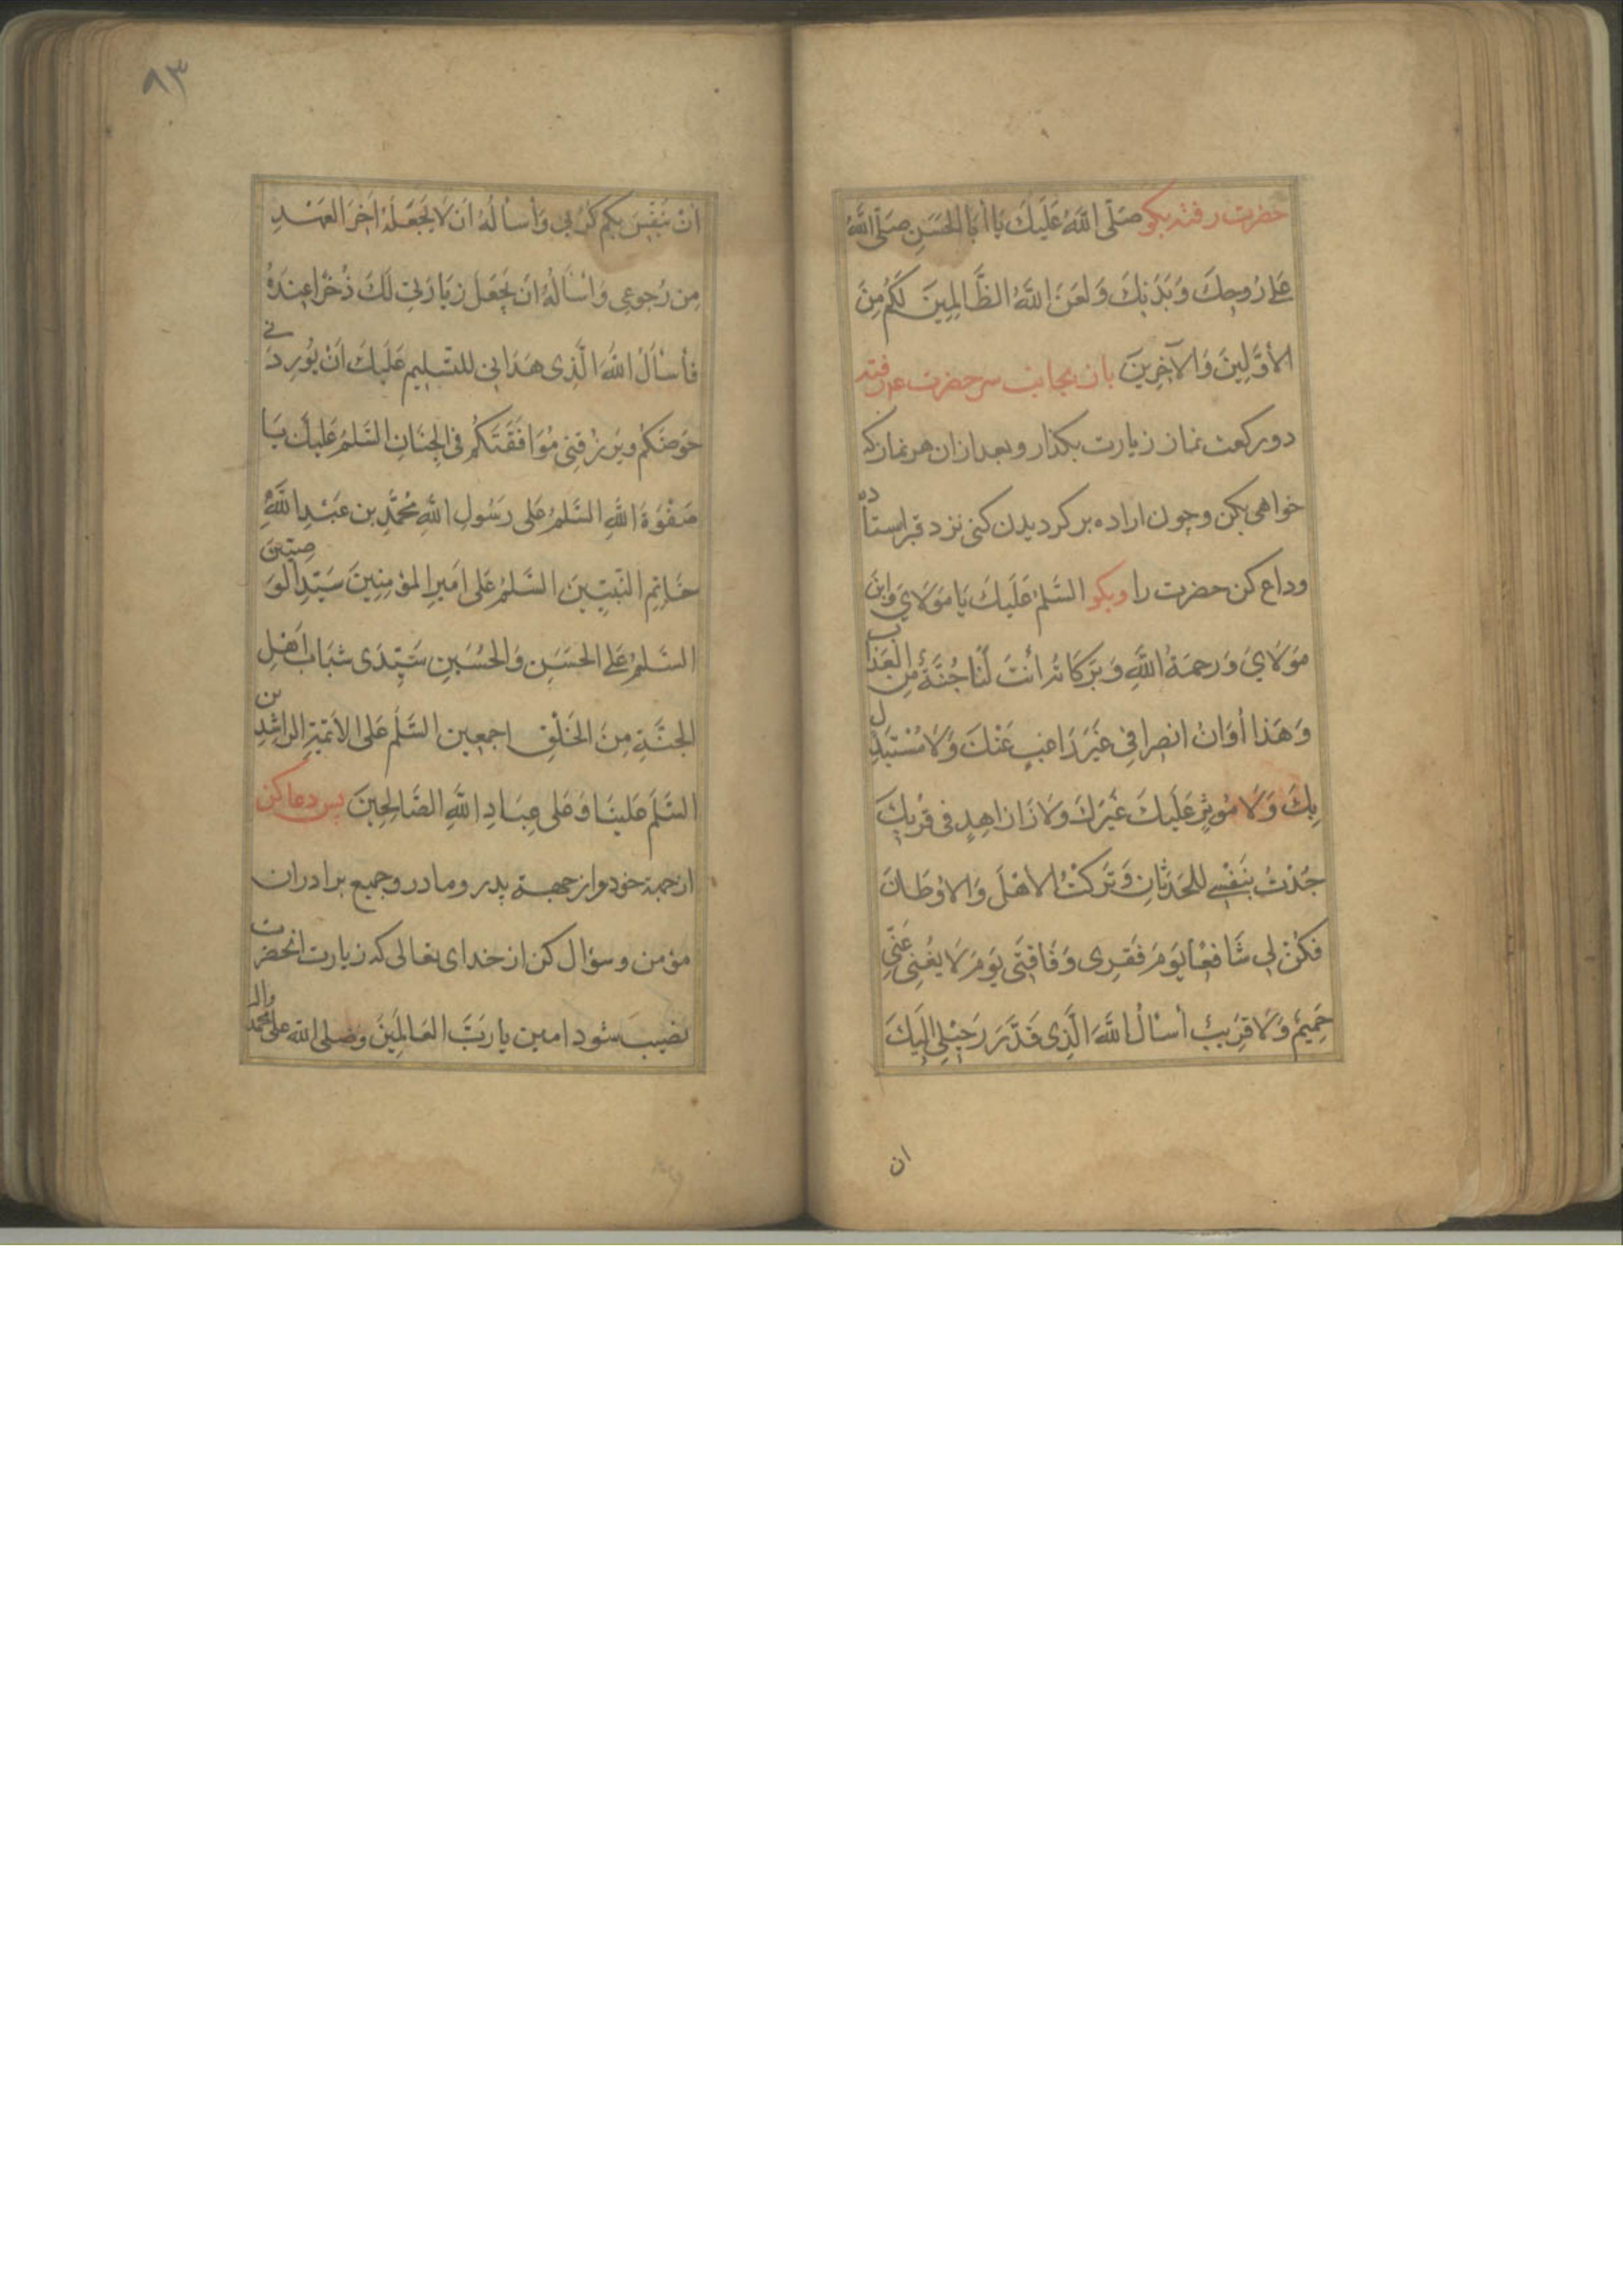 حضرت رفته بكو صَلَّى اللَّهُ عَلَيكَ يَا أَبَا الحَسَنِ صَلَّى اللَّهُ
عَلى رُوحِكَ وَبَدَنِكَ وَلَعَنَ اللَّهُ الظَّالِمِينَ لَكُم مِنَ
الأوَّلِينَ وَالآخِرِينَ باز بجانب سر حضرت عم رفته
دو ركعت نماز زيارت بكذار و بعد از ان هر نماز كه
خواهى بكن و چون اراده بر كرديدن كنى نزد قبر استاده
وداع كن حضرت را وبكو السَّلمُ عَلَيكَ يَا مَولَايَ وَابنَ
مَولَايَ وَرَحمَةُ اللَّهِ وَبَرَكَاتُه أَنتَ لَنَا جُنَّةٌ مِنَ العَذَابِ
وَهَذَا أوَانُ انصِرافِي غَيرَ رَاغِبٍ عَنْكَ وَلَا مُسْتَبدِلٍ
بِكَ وَلَا مُوثِرٍ عَلَيكَ غَيرَكَ وَلَا زَازاهِدٍ فى قُربِكَ
جُدْتُ بِنَفْسِي لِلحَدَثَانِ وَتَرَكْتُ الاهْلَ وَالاوْطَانَ
فَكُنْ لِى شَافِعًا يَومَ فَقرِى وَفَاقَتِى يَومَ لَا يُغنِى عَنِّى
حَمِيمٌ وَلَا قَرِيبٌ أسْالُ اللَّهَ الَّذِى قَدَّرَ رَحِيلِى إلَيكَ
ان
٨٣
أنْ يُنَفِّسَ بِكُم كُربِي وَأسالُهُ ان لَا يَجعَلَهُ اخِرَ العَهْدِ
مِن رُجوعِى وَاسَالُهُ ان يَجعَلَ زِيَارَتِى لَكَ ذُخرًا عِندَهُ
فأسأَلُ اللهَ الَّذِى هَدَانِى لِلتَسلِيمِ عَلَيكَ انْ يُورِدَنِى
حَوضَكُم ويَرزُقَنِى مُوَافَقَتَكُم فِى الجِنَانِ السَّلمُ عَلَيكَ يَا
صَفْوَةَ اللَّهِ السَّلمُ عَلى رَسُولِ اللَّهِ مُحَمَّدِ بنِ عَبْدِ اللَّهِ
خَاتِمِ النَّبِيّينَ السَّلمُ عَلى امَيرِ المؤمِنِينَ سَيِّدِ الوَصِيّينَ
السَّلمُ عَلى الحَسَنِ وَالحُسَينِ سَيِّدَى شَبَابِ اَهلِ
الجَنَّةِ مِنَ الخَلْقِ اجمَعِين السَّلَم عَلى الأَئمَّةِ الرَاشِدِين
السَّلَم عَلينَا وَعَلى عِبَادِ اللَّهِ الصَّالِحِينَ پس دعا كن
از جهة خود و از جهة پدر و مادر و جميع برادران
مؤمن و سؤال كن از خداى تعالى كه زيارت انحضرت
نصيب شود امين يا رَبَّ العَالَمِينَ وَصلى الله على محمد واله